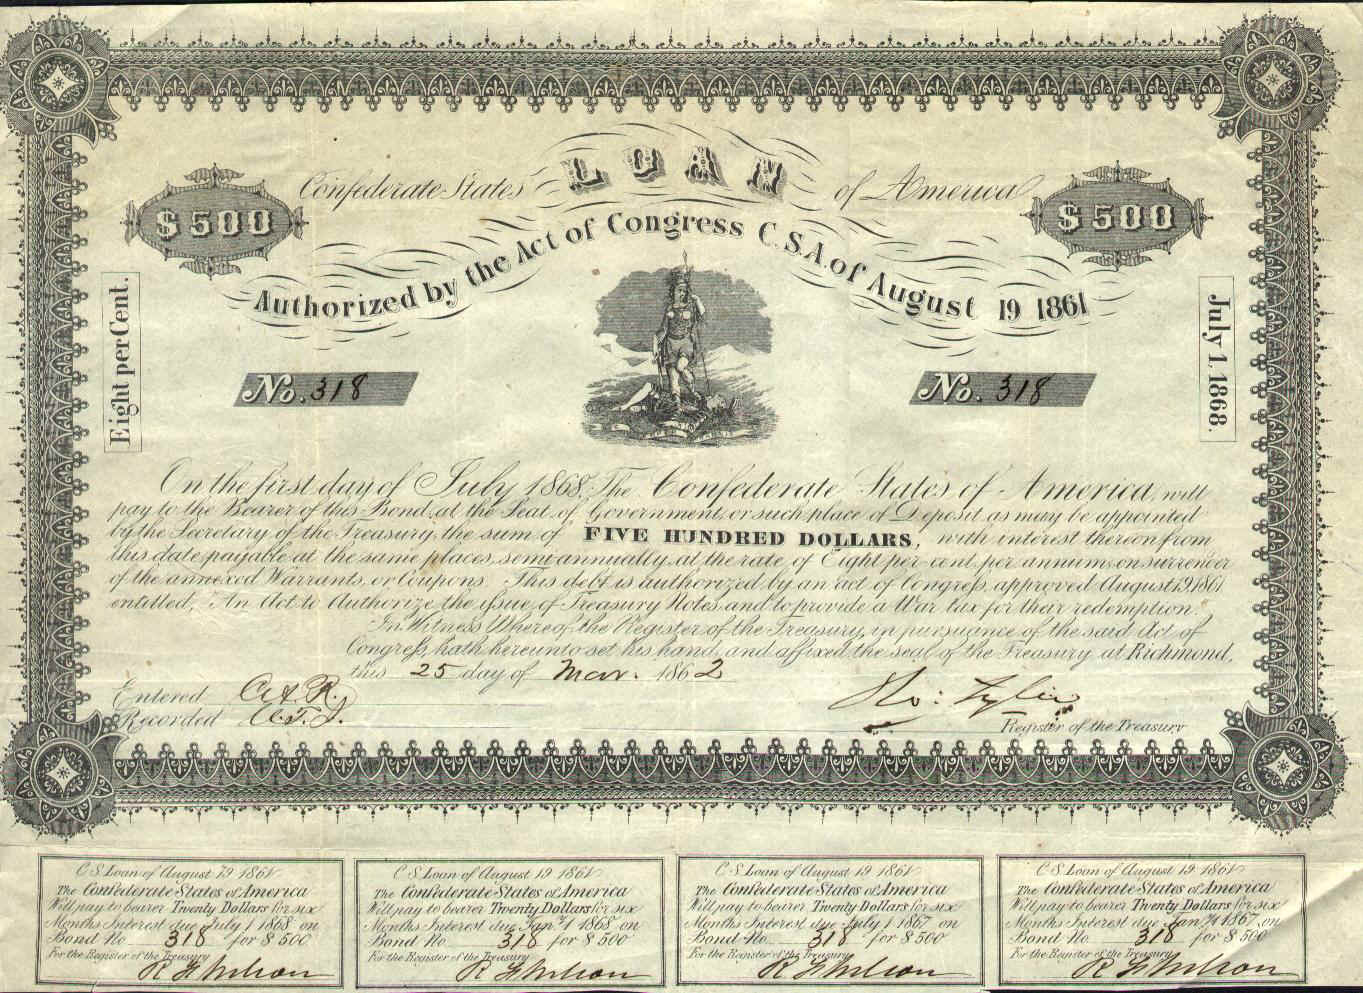 Confederate States LOAN of America
$500
$500
Authorized by the Act of Congress C.S.A. of August 19 1861
Eight per Cent.
July 1. 1868.
No. 318
No. 318
On the first day of July 1868, The Confederate States of America, will
pay to the Bearer of this Bond, at the Seat of Government, or such place of Deposit as may be appointed
by the Secretary of the Treasury, the sum of FIVE HUNDRED DOLLARS, with interest thereon from
this date payable at the same places, semi annually, at the rate of Eight per cent. per annum, on surrender
of the annexed Warrants, or Coupons. This debt is authorized by an act of Congress, approved August 19, 1861
entitled, "An Act to Authorize the issue of Treasury Notes, and to provide a War tax for their redemption."
In Witness Whereof the Register of the Treasury, in pursuance of the said Act of
Congress, hath hereunto set his hand, and affixed the seal of the Treasury at Richmond,
this 25 day of Mar. 1862
Entered
Recorded
Ro: Tyler
Register of the Treasury
C.S. Loan of August 19 1861
The Confederate States of America
Will pay to bearer Twenty Dollars for six
Months Interest due July 1 1868 on
Bond No 318 for $500
For the Register of the Treasury
C.S. Loan of August 19 1861
The Confederate States of America
Will pay to bearer Twenty Dollars for six
Months Interest due Jany. 1 1868 on
Bond No 318 for $500
For the Register of the Treasury
C.S. Loan of August 19 1861
The Confederate States of America
Will pay to bearer Twenty Dollars for six
Months Interest due July 1 1867 on
Bond No 318 for $500
For the Register of the Treasury
C.S. Loan of August 19 1861
The Confederate States of America
Will pay to bearer Twenty Dollars for six
Months Interest due Jany. 1 1867 on
Bond No 318 for $500
For the Register of the Treasury